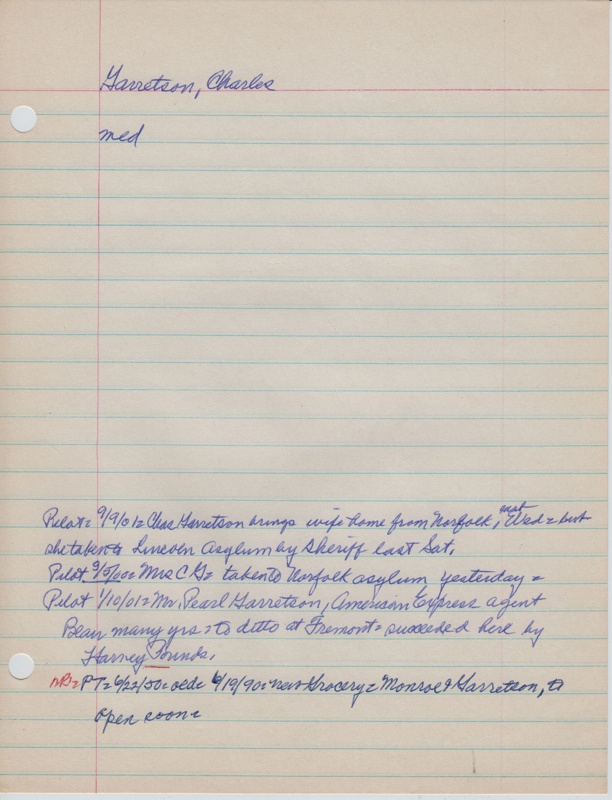 Garretson, Charles
med
Pilot= 9/9/01= Chas Garretson brings wife home from Norfolk, last Wed= but
she taken to Lincoln Asylum by Sheriff last Sat.
Pilot 9/5/00= Mrs C G= taken to Norfolk asylum yesterday=
Pilot 1/10/01= Mr. Pearl Garretson, American Express agent
Blair many yrs= to ditto at Fremont= succeeded here by
Harvey Pounds.
PT= 6/22/50= 6/19/90= new Grocery= Monroe & Garretson, to
open soon=